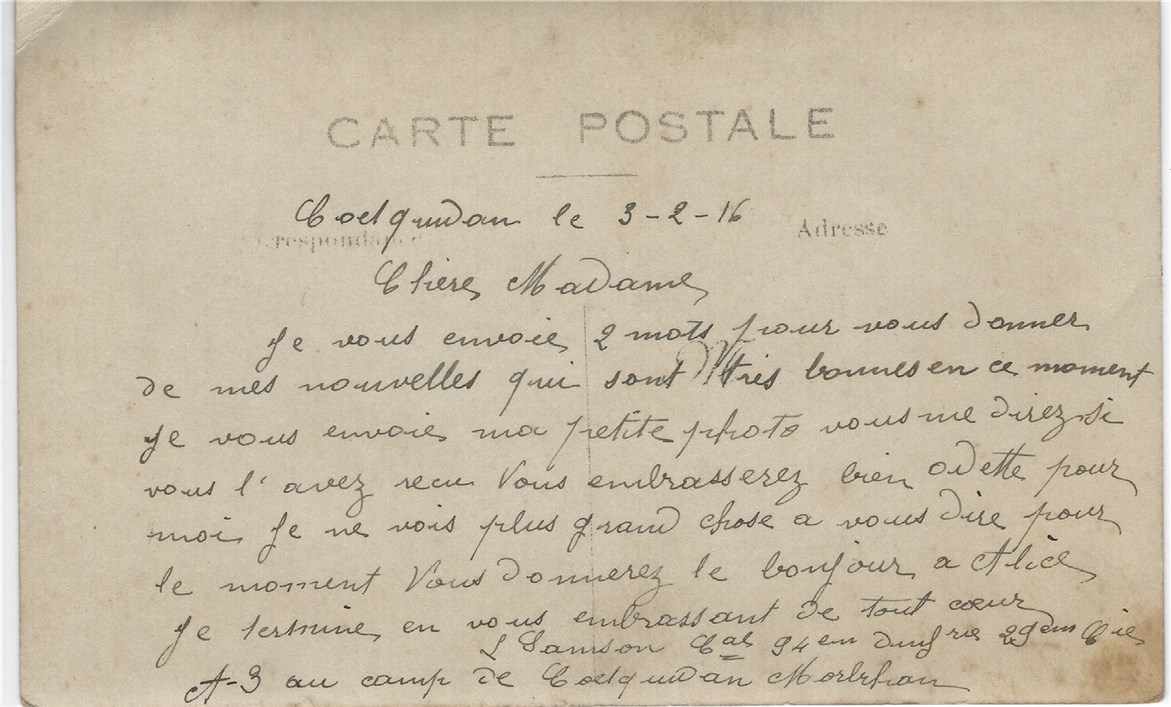 CARTE POSTALE
Coetquidan le 3-2-16
Correspondance
Adresse
Chère Madame
Je vous envoie 2 mots pour vous donner
de mes nouvelles qui sont très bonnes en ce moment
Je vous envoie ma petite photo vous me direz si
vous l'avez recu Vous embrasserez bien Odette pour
moi Je ne vois plus grand chose a vous dire pour
le moment Vous donnerez le bonjour a Alice
Je termine en vous embrassant de tout cœur
L Samson Cal 94em dinfrie 29em Cie
A-3 au camp de Coetquidan Morbihan